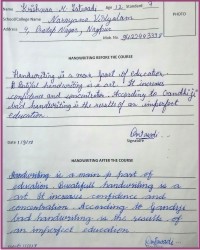 Name: Krishna M Tatwadi Age 12 Standard 7
School/College Name: Narayana Vidyalam
Address 9, Pratap Nagar, Nagpur
Mob. No.
PHOTO
HANDWRITING BEFORE THE COURSE
Handwriting is a main part of education.
Beautiful handwriting is a art. It increases
confidence and concentration. According to Gandhiji
bad handwriting is the results of an imperfect
education.
Signature
HANDWRITING AFTER THE COURSE
Handwriting is a main part of
education. Beautiful handwriting is a
art. It increases confidence and
concentration. According to Gandhiji
bad handwriting is the results
of an imperfect education